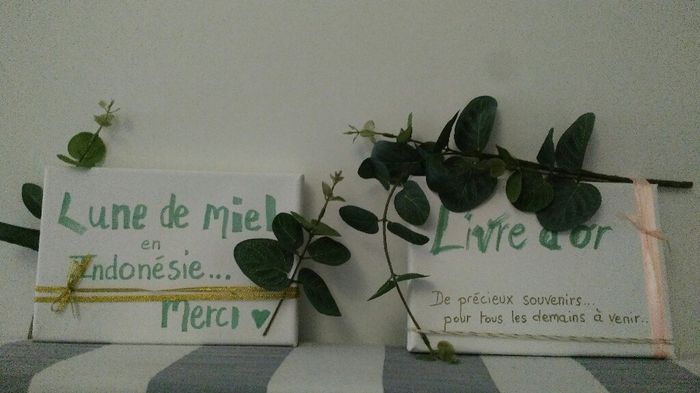 Lune de miel
en
Indonésie...
Merci ♥
Livre d'or
De précieux souvenirs...
pour tous les demains à venir..